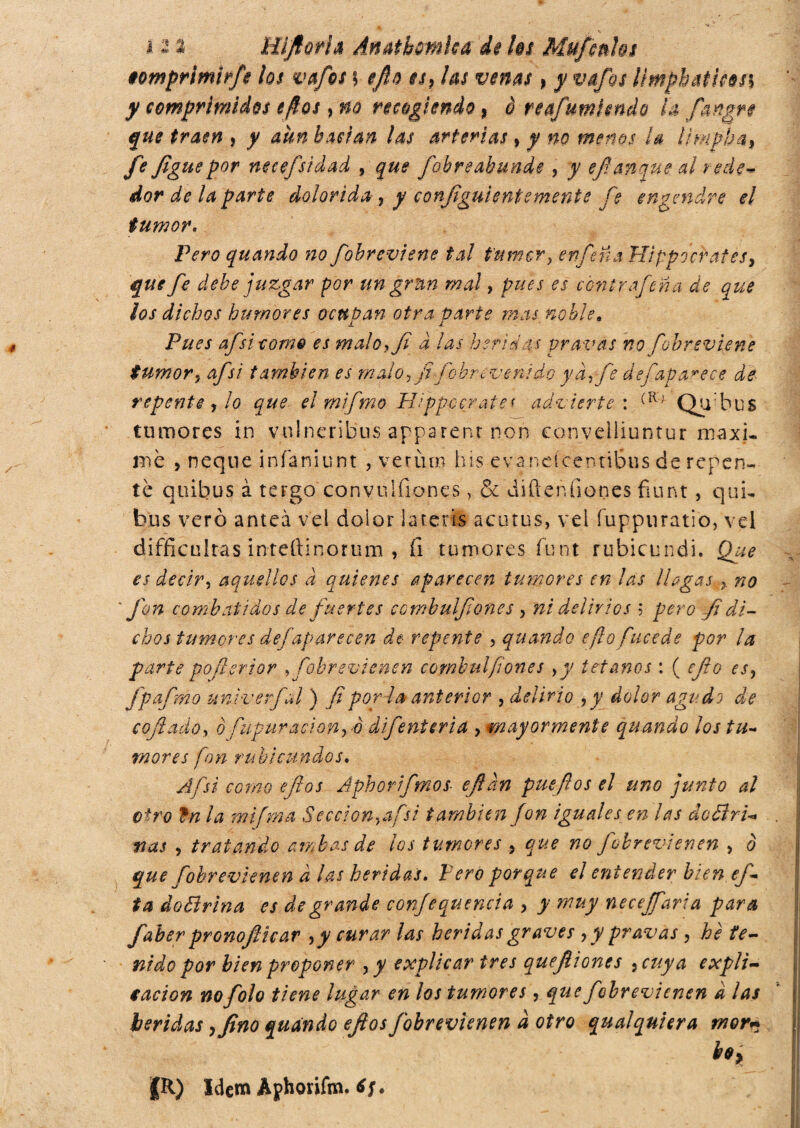 122 Hiſtoria Anathomica de los Muſculos
comprimirſe los vaſos; eſto es, las venas, y vaſos limphaticos;
y comprimidos eſtos, no recogiendo, ò reaſumiendo la ſangre
que traen, y aùn hacian las arterias, y no menos la limpha,
ſe ſigue por neceſsidad, que ſobreabunde, y eſtanque al rede-
dor de la parte dolorida, y conſiguientemente ſe engendre el
tumor.
Pero quando no ſobreviene tal tumor, enſeña Hippocrates,
que ſe debe juzgar por un gran mal, pues es contraſeña de que
los dichos humores ocupan otra parte mas noble.
Pues aſsi como es malo, ſi à las heridas pravas no ſobreviene
tumor, aſsi tambien es malo, ſi ſobrevenido yà, ſe deſaparece de
repente, lo que el miſmo Hippocrates advierte: (R) Quibus
tumores in vulneribus apparent non convelliuntur maxi-
mè, neque inſaniunt, verùm his evaneſcentibus de repen-
tè quibus à tergo convulſiones, & diſtenſiones fiunt, qui-
bus verò anteà vel dolor lateris acutus, vel ſuppuratio, vel
difficultas inteſtinorum, ſi tumores ſunt rubicundi. Que
es decir, aquellos à quienes aparecen tumores en las llagas, no
ſon combatidos de fuertes combulſiones, ni delirios; pero ſi di-
chos tumores deſaparecen de repente, quando eſto ſucede por la
parte poſterior, ſobrevienen combulſiones, y tetanos: ( eſto es,
ſpaſmo univerſal ) ſi por la anterior, delirio, y dolor agudo de
coſtado, ò ſupuracion, ò diſenteria, mayormente quando los tu-
mores ſon rubicundos.
Aſsi como eſtos Aphoriſmos eſtàn pueſtos el uno junto al
otro en la miſma Seccion, aſsi tambien ſon iguales en las doctri-
nas, tratando ambas de los tumores, que no ſobrevienen, ò
que ſobrevienen à las heridas. Pero porque el entender bien eſ-
ta doctrina es de grande conſequencia, y muy neceſſaria para
ſaber pronoſticar, y curar las heridas graves, y pravas, hè te-
nido por bien proponer, y explicar tres queſtiones, cuya expli-
cacion no ſolo tiene lugar en los tumores, que ſobrevienen à las
heridas, ſino quando eſtos ſobrevienen à otro qualquiera mor-
bo,
(R) Idem Aphoriſm. 65.